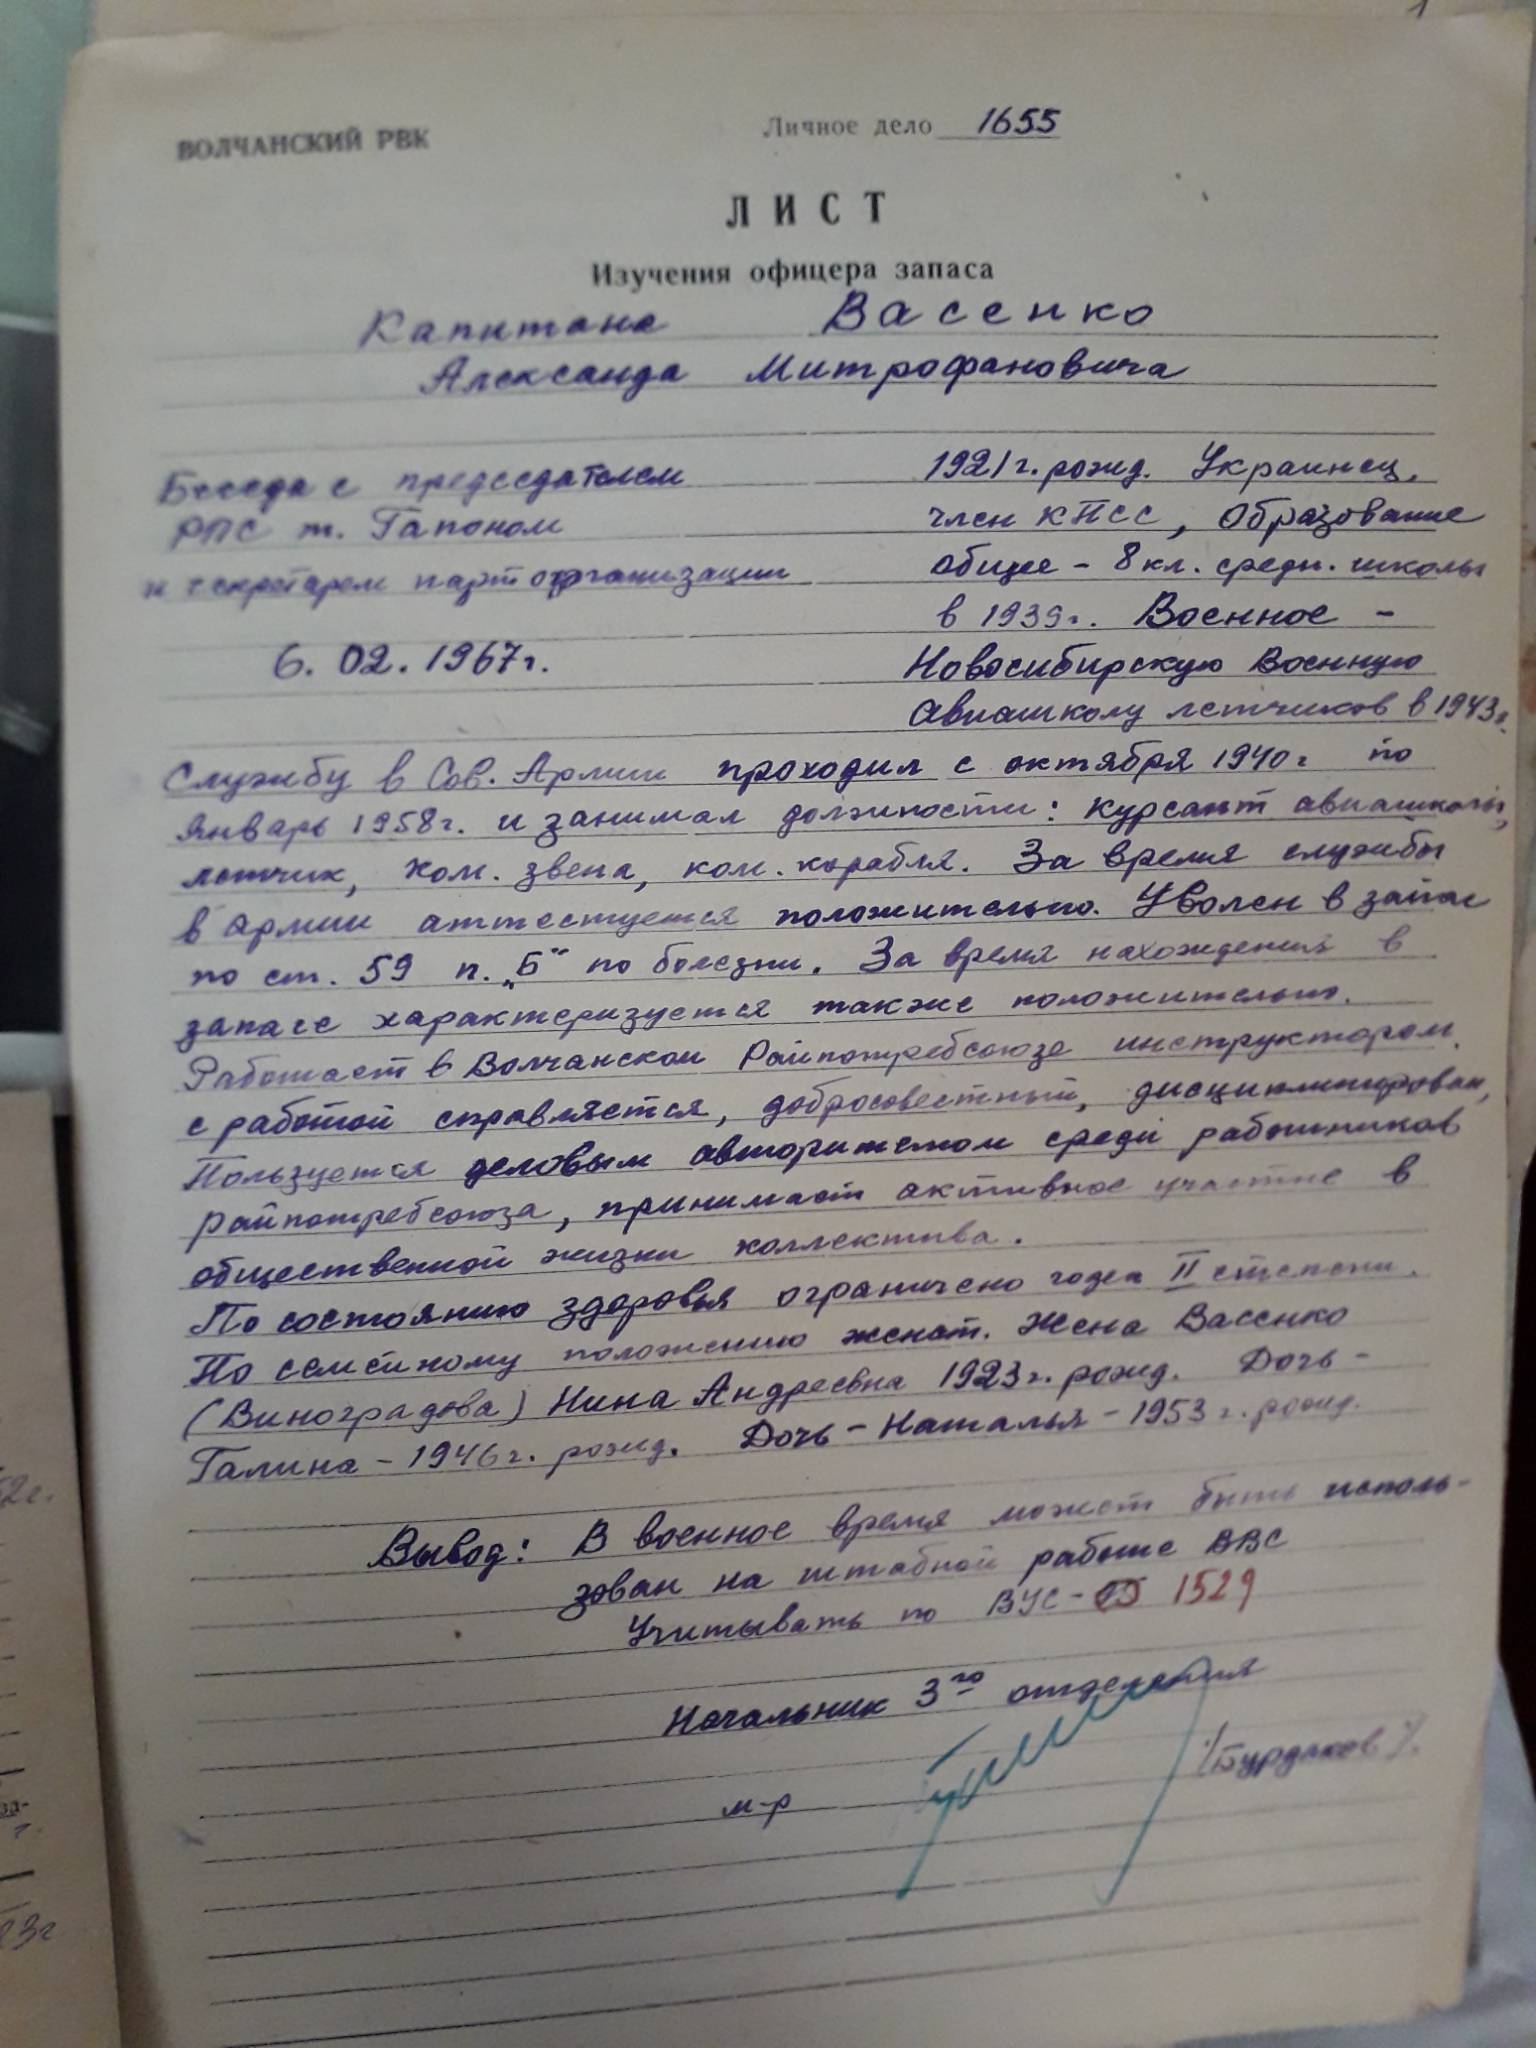 ВОЛЧАНСКИЙ РВК
Личное дело 1655
ЛИСТ
Изучения офицера запаса
Капитана Васенко
Александа Митрофановича
Беседа с председателем
РПС т. Гапоном
и секретарем парторганизации
6. 02. 1967г.
1921г. рожд. Украинец,
член КПСС, Образование
общее - 8 кл. средн. школы
в 1939г. Военное -
Новосибирскую Военную
Авиашколу летчиков в 1943г.
Службу в Сов. Армии проходил с октября 1940г по
январь 1958г. и занимал должности: курсант авиашколы,
летчик, ком. звена, ком. корабля. За время службы
в Армии аттестуется положительно. Уволен в запас
по ст. 59 п. „Б" по болезни. За время нахождения в
запасе характеризуется также положительно.
Работает в Волчанском Райпотребсоюзе инструктором.
с работой справляется, добросовестный, дисциплинирован,
Пользуется деловым авторитетом среди работников
райпотребсоюза, принимает активное участие в
общественной жизни коллектива.
По состоянию здоровья ограничено годен II степени.
По семейному положению женат. Жена Васенко
(Виноградова) Нина Андреевна 1923г. рожд. Дочь -
Галина - 1946г. рожд. Дочь - Наталья - 1953г. рожд.
Вывод: В военное время может быть исполь-
зован на штабной работе ВВС
Учитывать по ВУС- 1529
Начальник 3го отделения
м-р /Бурдаков/.